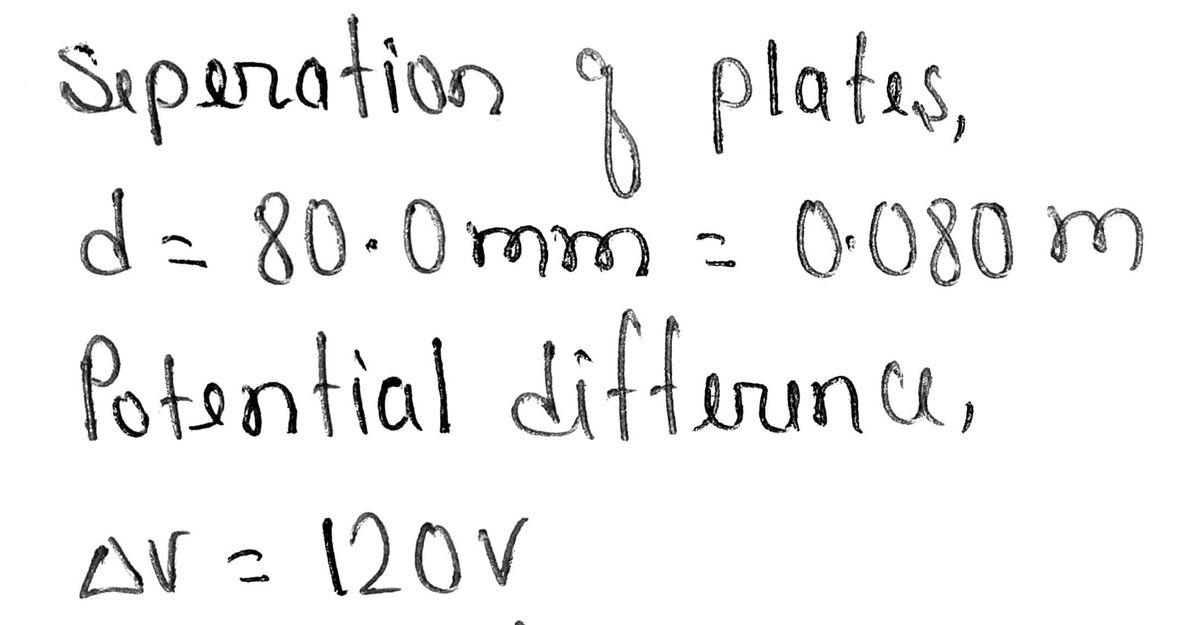 Seperation of plates,
d = 80.0 mm = 0.080 m
Potential difference,
ΔV = 120V